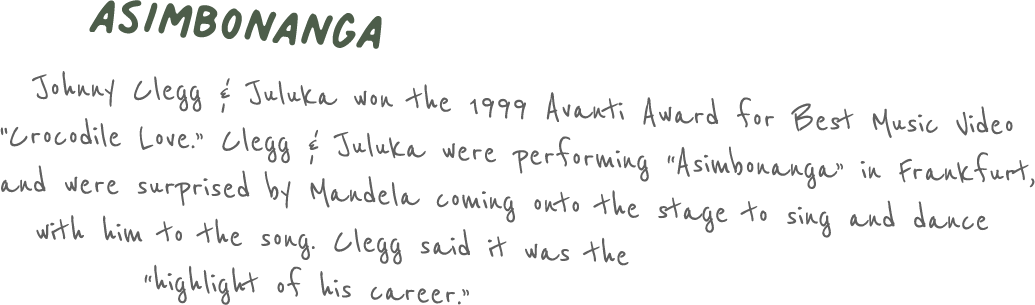 ASIMBONANGA
Johnny Clegg & Juluka won the 1999 Avanti Award for Best Music Video
"Crocodile Love." Clegg & Juluka were performing "Asimbonanga" in Frankfurt,
and were surprised by Mandela coming onto the stage to sing and dance
with him to the song. Clegg said it was the
"highlight of his career."